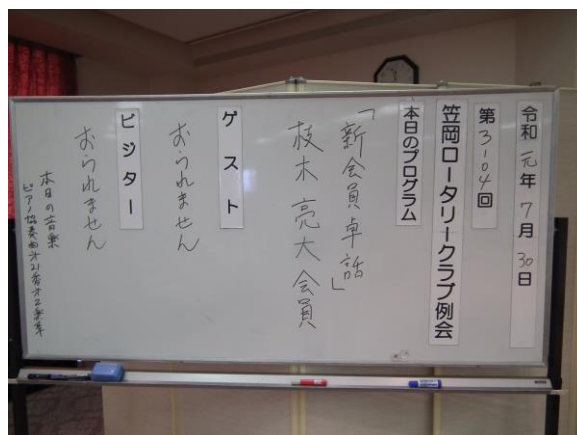 令和 元年 7月 30日
第3104回
笠岡ロータリークラブ例会
本日のプログラム
「新会員卓話」
枝木 亮大 会員
ゲスト
おられません
ビジター
おられません
本日の音楽
ピアノ協奏曲才21番才2楽章